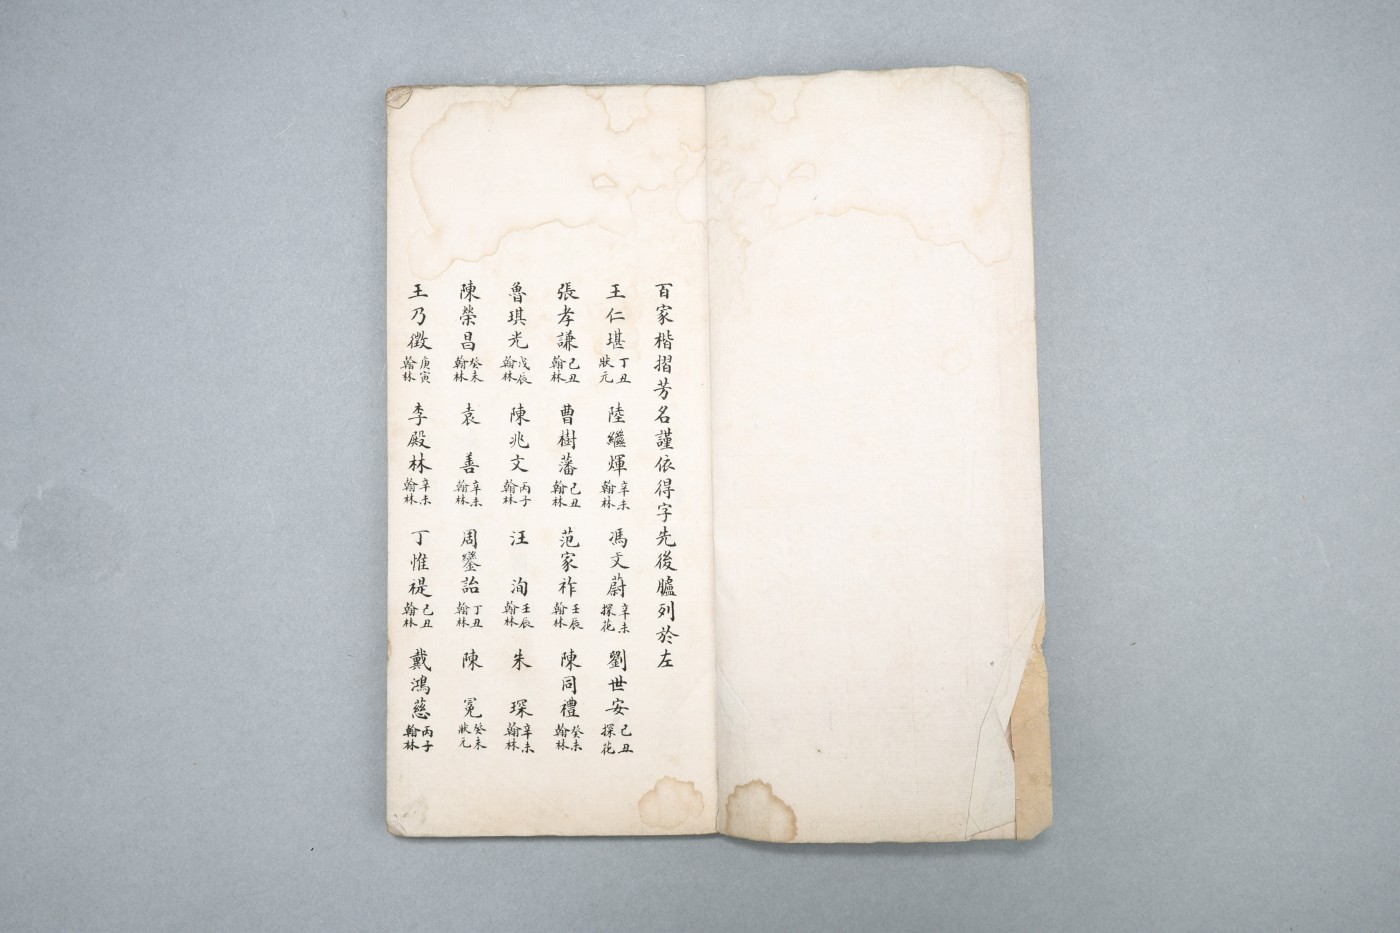 百家楷摺芳名謹依得字先後臚列於左
王仁堪 丁丑狀元 陸繼煇 辛未翰林 馮文蔚 辛未探花 劉世安 己丑探花
張孝謙 己丑翰林 曹樹藩 己丑翰林 范家祚 壬辰翰林 陳同禮 癸未翰林
魯琪光 戊辰翰林 陳兆文 丙子翰林 汪洵 壬辰翰林 朱琛 辛未翰林
陳榮昌 癸未翰林 袁善 辛未翰林 周鑾詒 丁丑翰林 陳冕 癸未狀元
王乃徵 庚寅翰林 李殿林 辛未翰林 丁惟禔 己丑翰林 戴鴻慈 丙子翰林